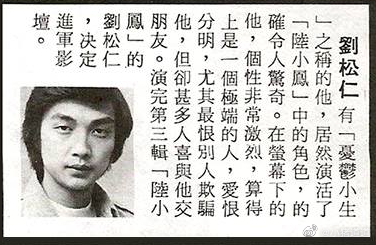 劉松仁 有「憂鬱小生
」之稱的他，居然演活了
「陸小鳳」中的角色，的
確令人驚奇。在螢幕下的
他，個性非常激烈，算得
上是一個極端的人，愛恨
分明，尤其最恨別人欺騙
他，但卻甚多人喜與他交
朋友。演完第三輯「陸小
鳳」的
劉松仁
，決定
進軍影
壇。